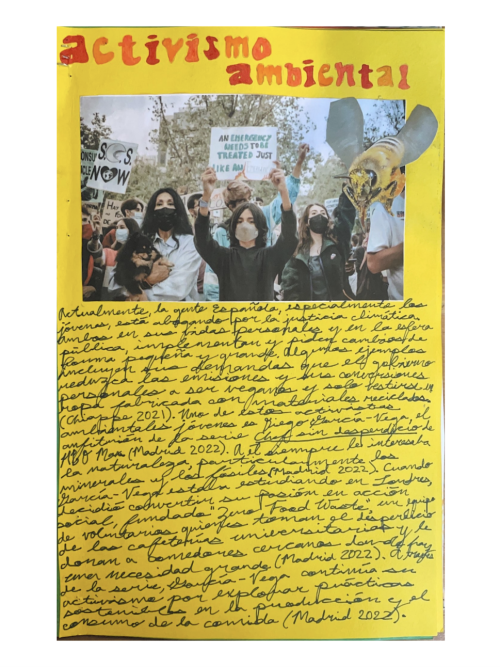 activismo
ambiental
AN EMERGENCY
NEEDS TO BE
TREATED JUST
LIKE AN
S.O.S.
NOW
Actualmente, la gente Española, especialmente los
jóvenes, está abogando por la justicia climática.
Ambos en sus vidas personales y en la esfera
pública, implementan y piden cambios de
forma pequeña y grande. Algunos ejemplos
incluyen sus demandas que el gobierno
reduzca las emisiones y sus conversiones
personales a ser veganos y solo vestirse en
ropa fabricada con materiales reciclados
(Chiappe 2021). Uno de estos activistas
ambientales jóvenes es Diego García-Vega, el
anfitrión de la serie Chef sin desperdicio de
HBO Max (Madrid 2022). A él siempre le interesaba
la naturaleza, particularmente los
minerales y los fósiles (Madrid 2022). Cuando
García-Vega estaba estudiando en Londres,
decidió convertir su pasión en acción
social, fundado "Zero Food Waste" un equipo
de voluntarios quienes toman el desperdicio
de las cafeterías universitarias y lo
donan a comedores cercanos donde hay
una necesidad grande (Madrid 2022). A través
de la serie, García-Vega continúa su
activismo por explorar prácticas
sostenibles en la producción y el
consumo de la comida (Madrid 2022).